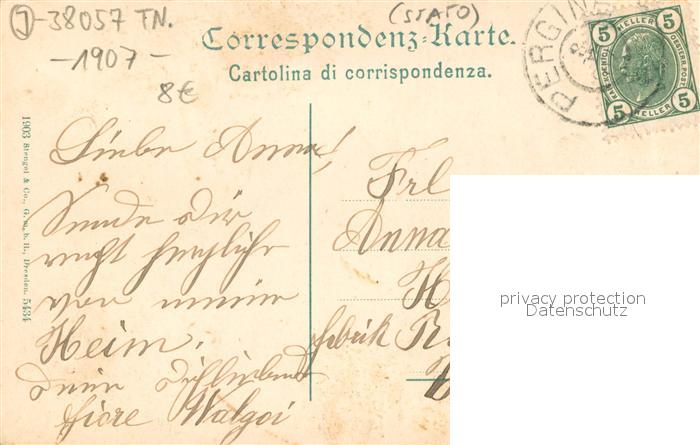 J-38057 TN.
-1907-
8€
(STATO)
Correspondenz-Karte.
Cartolina di corrispondenza.
PERGINE
5 HELLER 5
KAIS. KOENIGL. OESTERR. POST
5 HELLER 5
1903 Stengel & Co., G. m. b. H., Dresden. 5434
Liebe Anna!
Sende dir
recht herzliche
von meine
Heim.
deine dich liebende
Walgoi
Frl
Anna
H
Fabrik R
privacy protection
Datenschutz